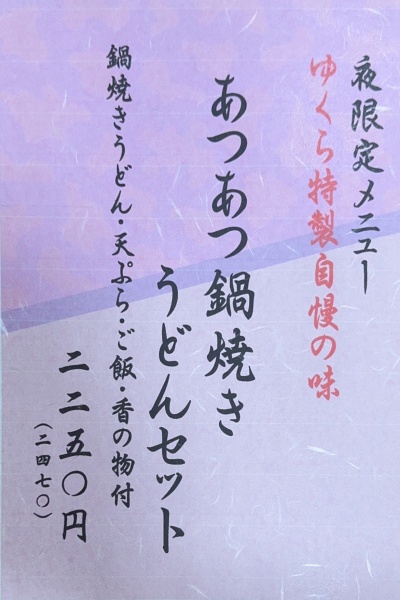 夜限定メニュー
ゆくら特製自慢の味
あつあつ鍋焼き
うどんセット
鍋焼きうどん・天ぷら・ご飯・香の物付
二二五〇円
（二四七〇）